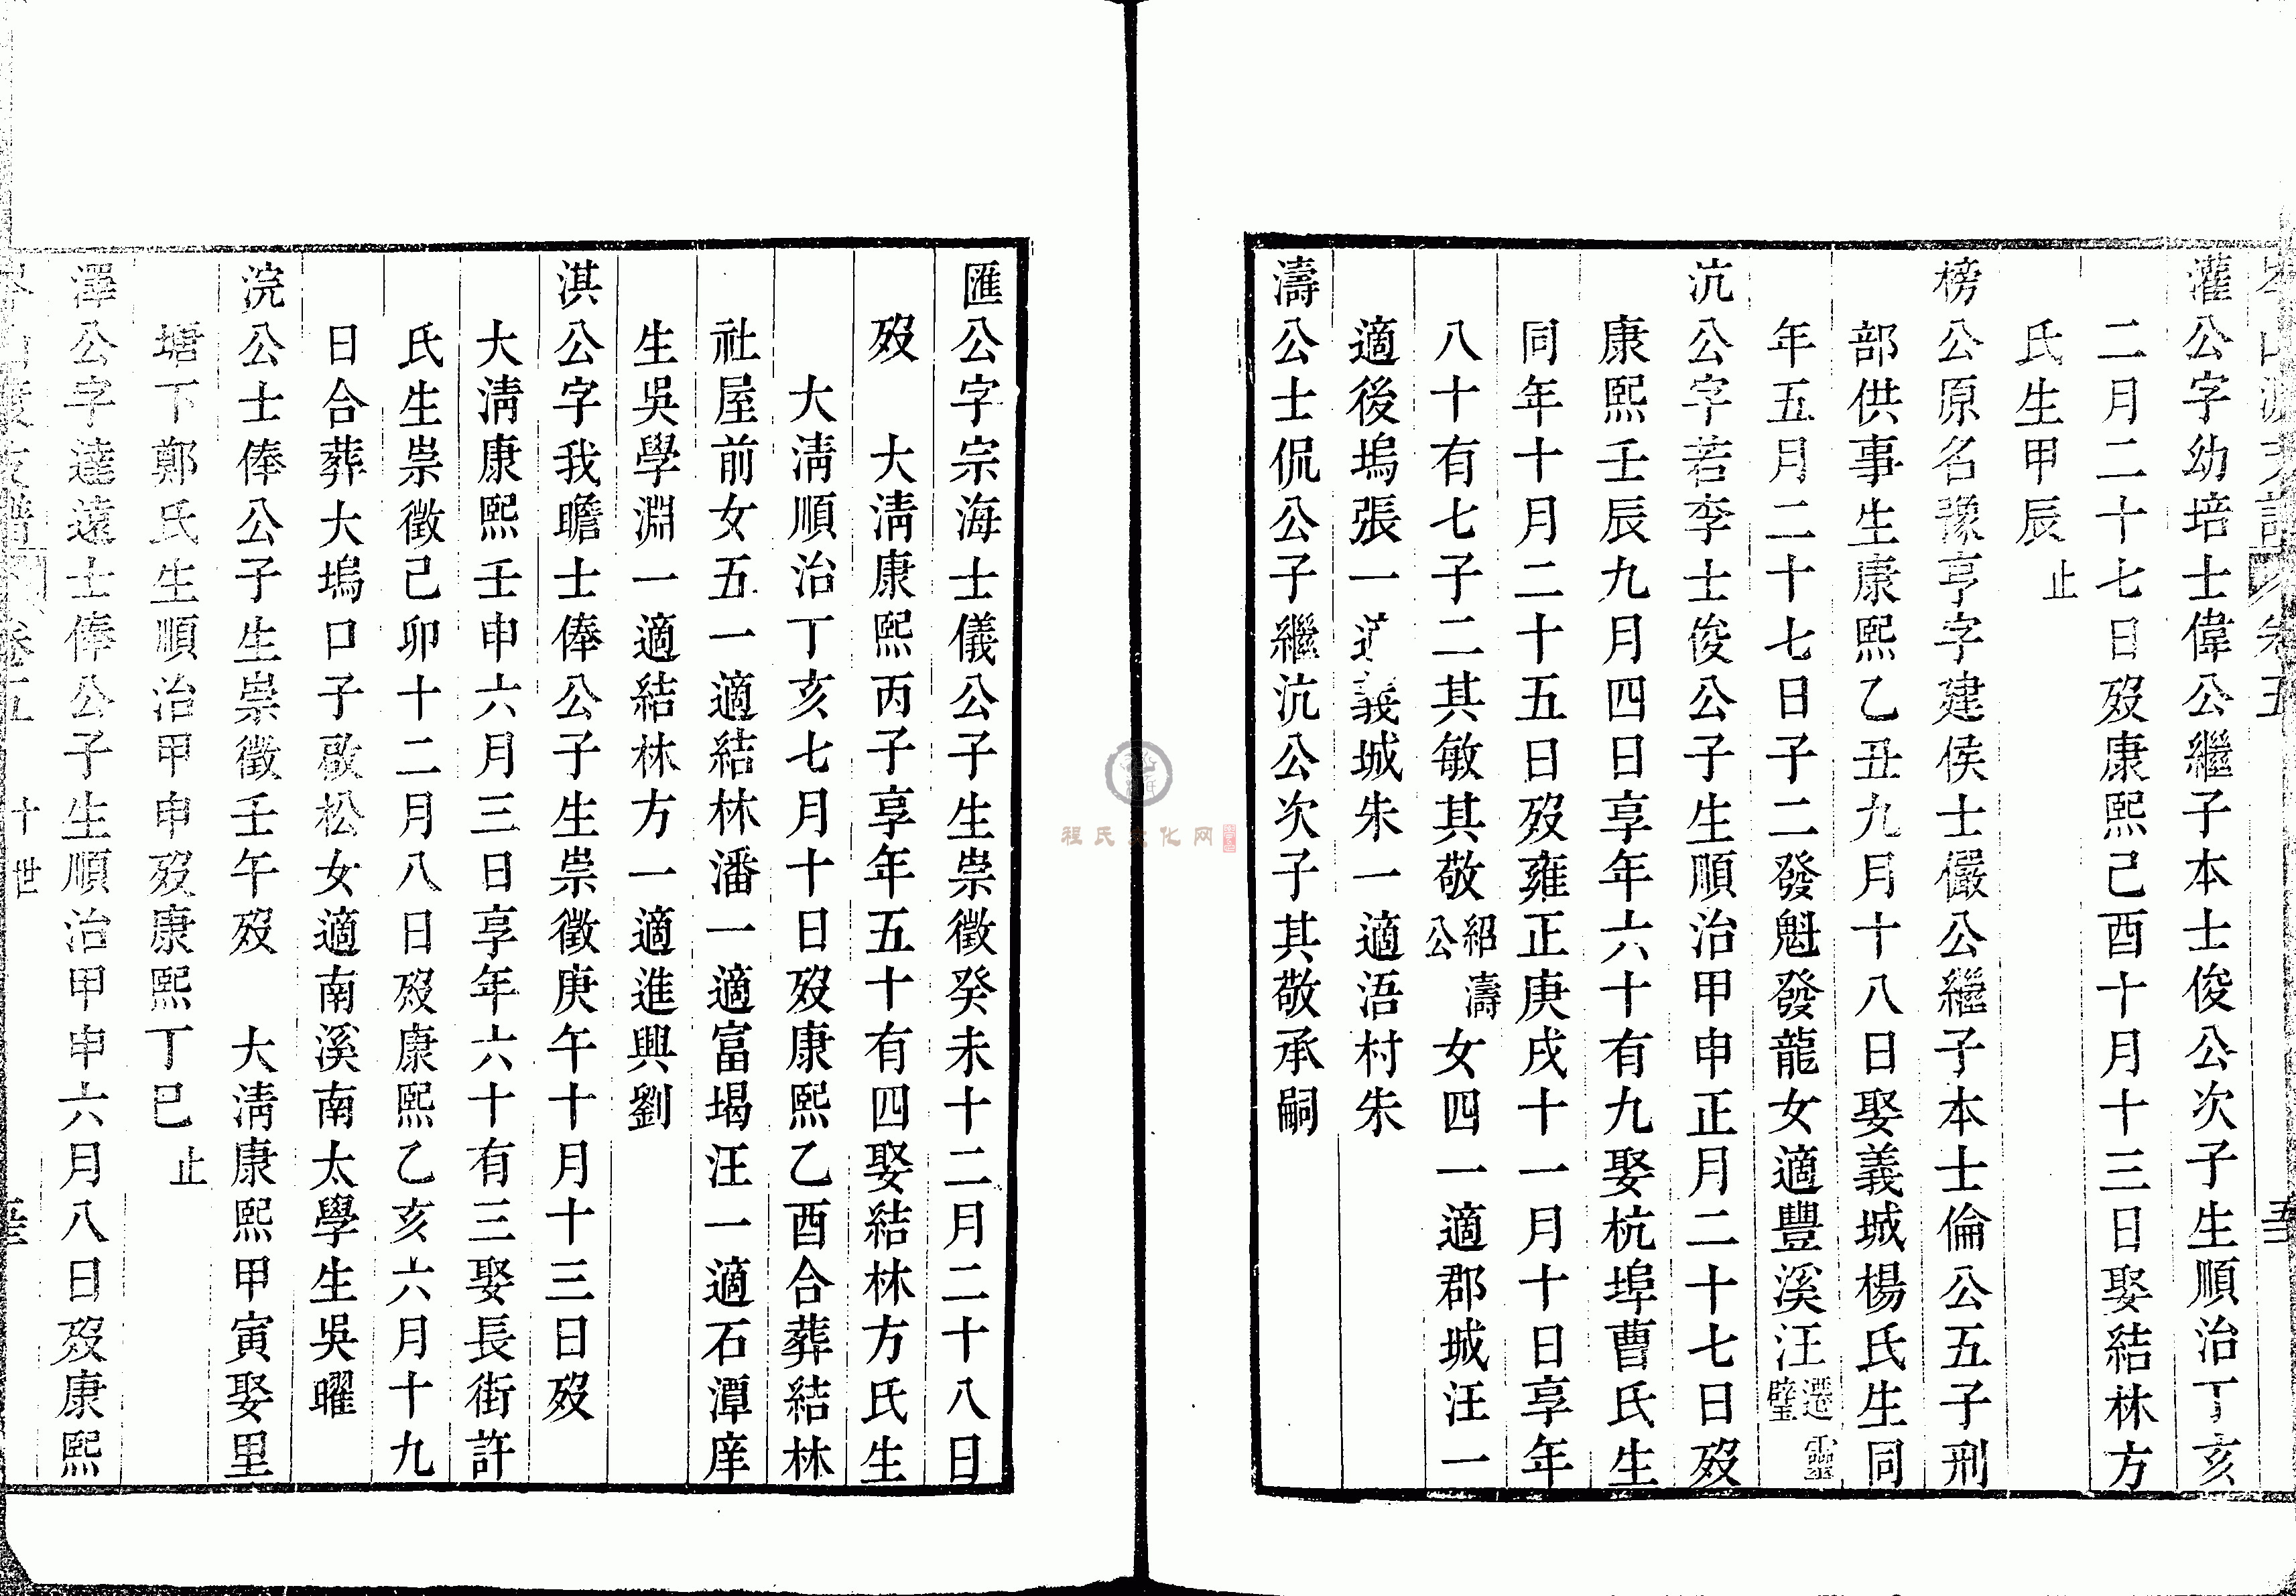 灌公字幼培士偉公繼子本士俊公次子生順治丁亥
二月二十七日歿康熙己酉十月十三日娶結林方
氏生甲辰止
榜公原名豫亨字建侯士儼公繼子本士倫公五子刑
部供事生康熙乙丑九月十八日娶義城楊氏生同
年五月二十七日子二發魁發龍女適豐溪汪遷靈璧
沆公字若李士俊公子生順治甲申正月二十七日歿
康熙壬辰九月四日享年六十有九娶杭埠曹氏生
同年十月二十五日歿雍正庚戌十一月十日享年
八十有七子二其敏其敬紹濤公女四一適郡城汪一
適後塢張一適義城朱一適浯村朱
濤公士侃公子繼沆公次子其敬承嗣
匯公字宗海士儀公子生崇徵癸未十二月二十八日
歿 大清康熙丙子享年五十有四娶結林方氏生
大清順治丁亥七月十日歿康熙乙酉合葬結林
社屋前女五一適結林潘一適富堨汪一適石潭庠
生吳學淵一適結林方一適進興劉
淇公字我瞻士俸公子生崇徵庚午十月十三日歿
大清康熙壬申六月三日享年六十有三娶長街許
氏生崇徵己卯十二月八日歿康熙乙亥六月十九
日合葬大塢口子啟松女適南溪南太學生吳曜
浣公士俸公子生崇徵壬午歿 大清康熙甲寅娶里
塘下鄭氏生順治甲申歿康熙丁巳止
澤公字達遠士俸公子生順治甲申六月八日歿康熙
十世
程氏文化网